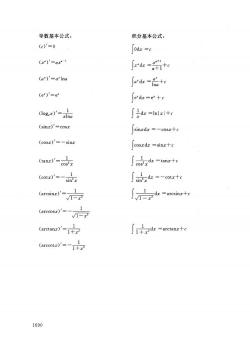 导数基本公式：
(c)'=0
(xᵅ)'=αxᵅ⁻¹
(aˣ)'=aˣlna
(eˣ)'=eˣ
(logₐx)'=1/(xlna)
(sinx)'=cosx
(cosx)'=-sinx
(tanx)'=1/cos²x
(cotx)'=-1/sin²x
(arcsinx)'=1/√(1-x²)
(arccosx)'=-1/√(1-x²)
(arctanx)'=1/(1+x²)
(arccotx)'=-1/(1+x²)
积分基本公式：
∫0dx=c
∫xᵅdx=xᵅ⁺¹/(α+1)+c
∫aˣdx=aˣ/lna+c
∫eˣdx=eˣ+c
∫1/x dx=ln|x|+c
∫sinxdx=-cosx+c
∫cosxdx=sinx+c
∫1/cos²x dx=tanx+c
∫1/sin²x dx=-cotx+c
∫1/√(1-x²) dx=arcsinx+c
∫1/(1+x²) dx=arctanx+c